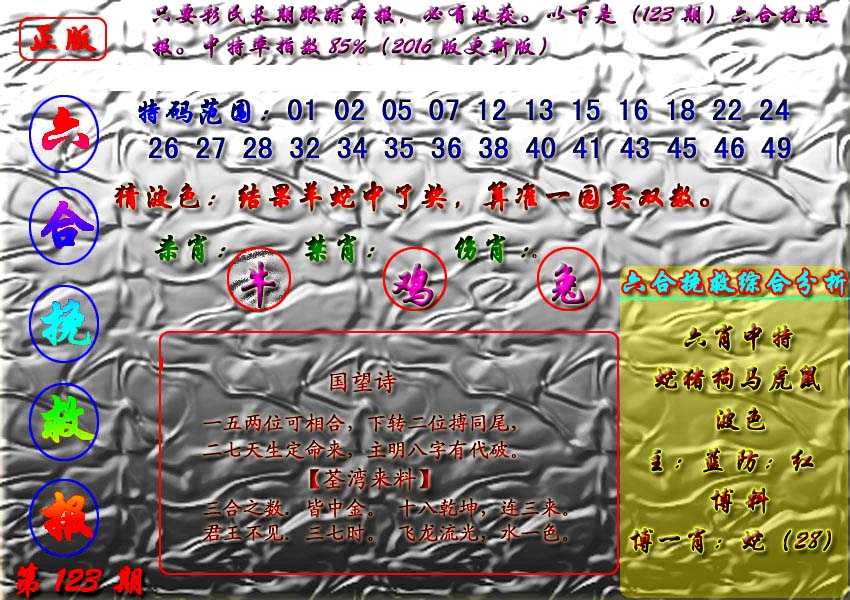 正版
只要彩民长期跟踪本报，必有收获。以下是（123 期）六合挽救
报。中特率指数 85%（2016 版更新版）
六合挽救报
第 123 期
特码范围：01 02 05 07 12 13 15 16 18 22 24
26 27 28 32 34 35 36 38 40 41 43 45 46 49
猜波色：结果羊蛇中了奖，算准一园买双数。
杀肖：牛 禁肖：鸡 伤肖：兔
国望诗
一五两位可相合，下转二位搏同尾，
二七天生定命来，主明八字有代破。
【荃湾来料】
三合之数．皆中金。 十八乾坤，连三来。
君王不见．三七时。 飞龙流光，水一色。
六合挽救综合分析
六肖中特
蛇猪狗马虎鼠
波色
主：蓝防：红
博料
博一肖：蛇（28）